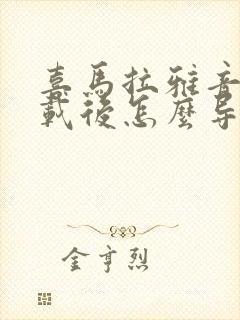 喜馬拉雅音
載後怎麼导
金亨烈